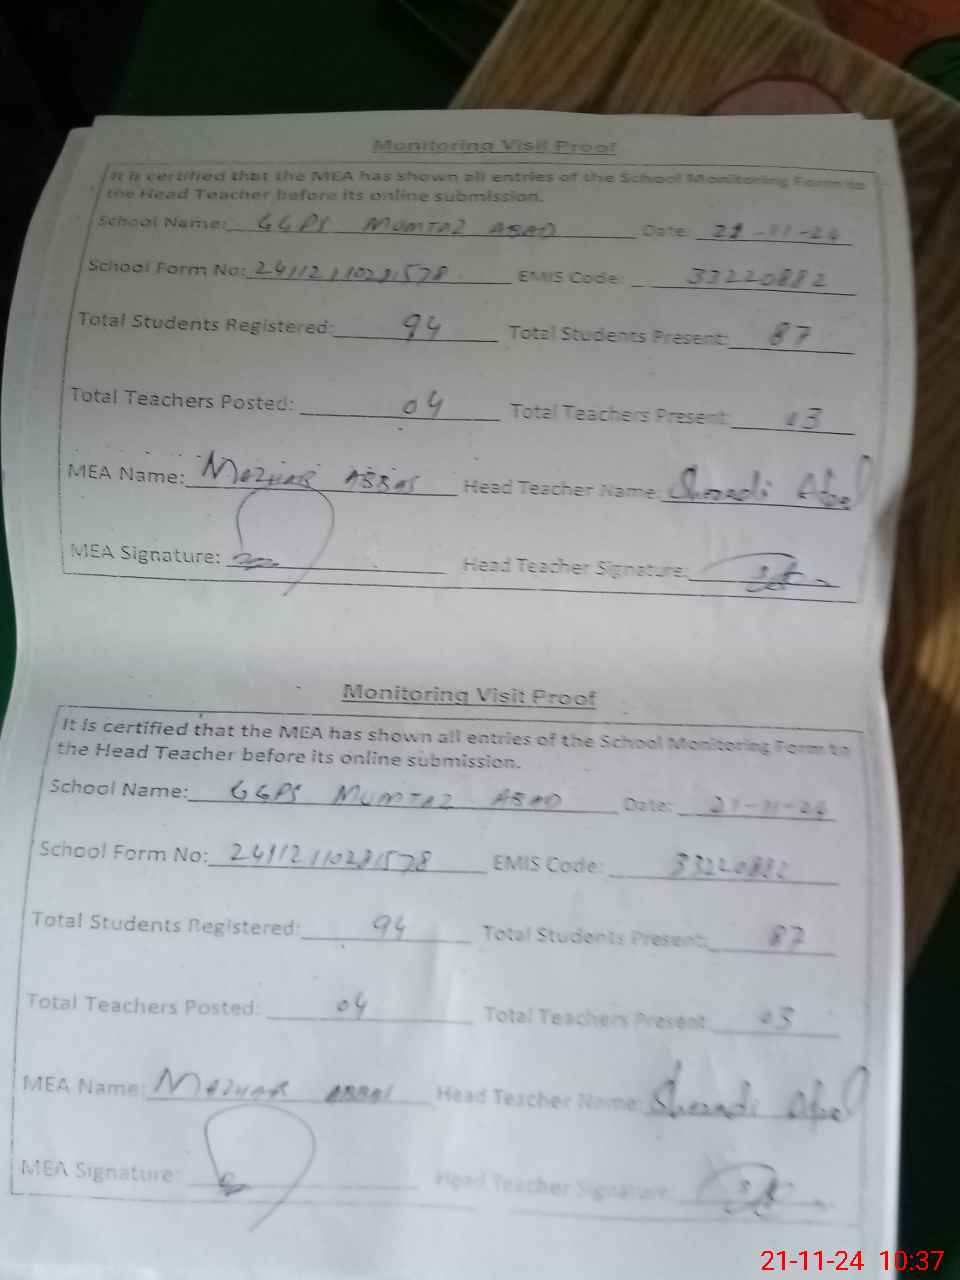 Monitoring Visit Proof
It is certified that the MEA has shown all entries of the School Monitoring Form to
the Head Teacher before its online submission.
School Name: GGPS MUMTAZ ABAD Date: 21-11-24
School Form No: EMIS Code: 33220882
Total Students Registered: 94 Total Students Present: 87
Total Teachers Posted: 04 Total Teachers Present: 03
MEA Name: MAZHAR ABBAS Head Teacher Name:
MEA Signature: Head Teacher Signature:
Monitoring Visit Proof
It is certified that the MEA has shown all entries of the School Monitoring Form to
the Head Teacher before its online submission.
School Name: GGPS MUMTAZ ABAD Date: 21-11-24
School Form No: EMIS Code: 33220882
Total Students Registered: 94 Total Students Present: 87
Total Teachers Posted: 04 Total Teachers Present: 03
MEA Name: MAZHAR ABBAS Head Teacher Name:
MEA Signature: Head Teacher Signature:
21-11-24 10:37